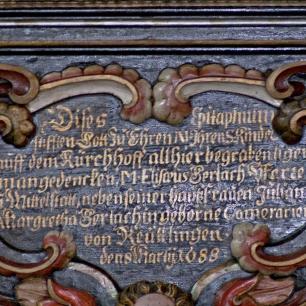 Dises Epitaphium
stifften Gott zu Ehren N Ihren Kinde
auff dem Kürchhoff allhier begraben ligen
M. Elisæus Gerlach Pfarrer
Mittelstatt, neben seiner haus frauen Julian
Margretha Gerlachin geborne Camerarien
von Reütlingen
den 8 Martij 1688